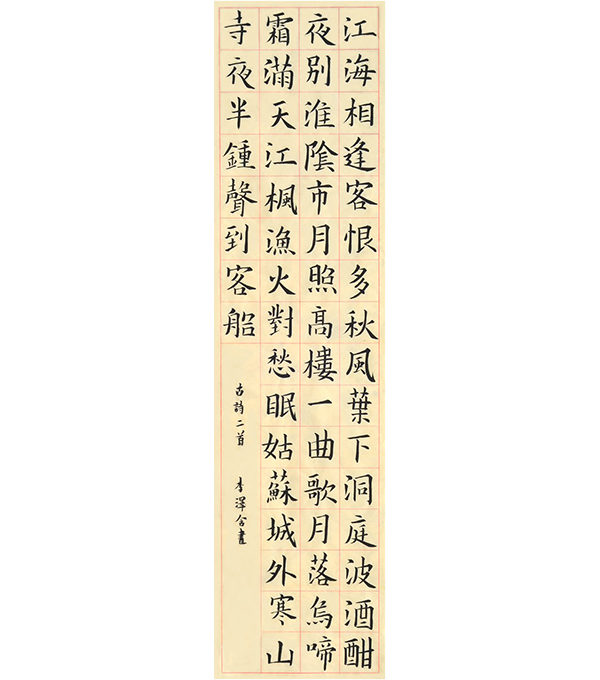 江海相逢客恨多秋風葉下洞庭波酒酣
夜別淮陰市月照高樓一曲歌月落烏啼
霜滿天江楓漁火對愁眠姑蘇城外寒山
寺夜半鍾聲到客船
古詩二首 李澤含書